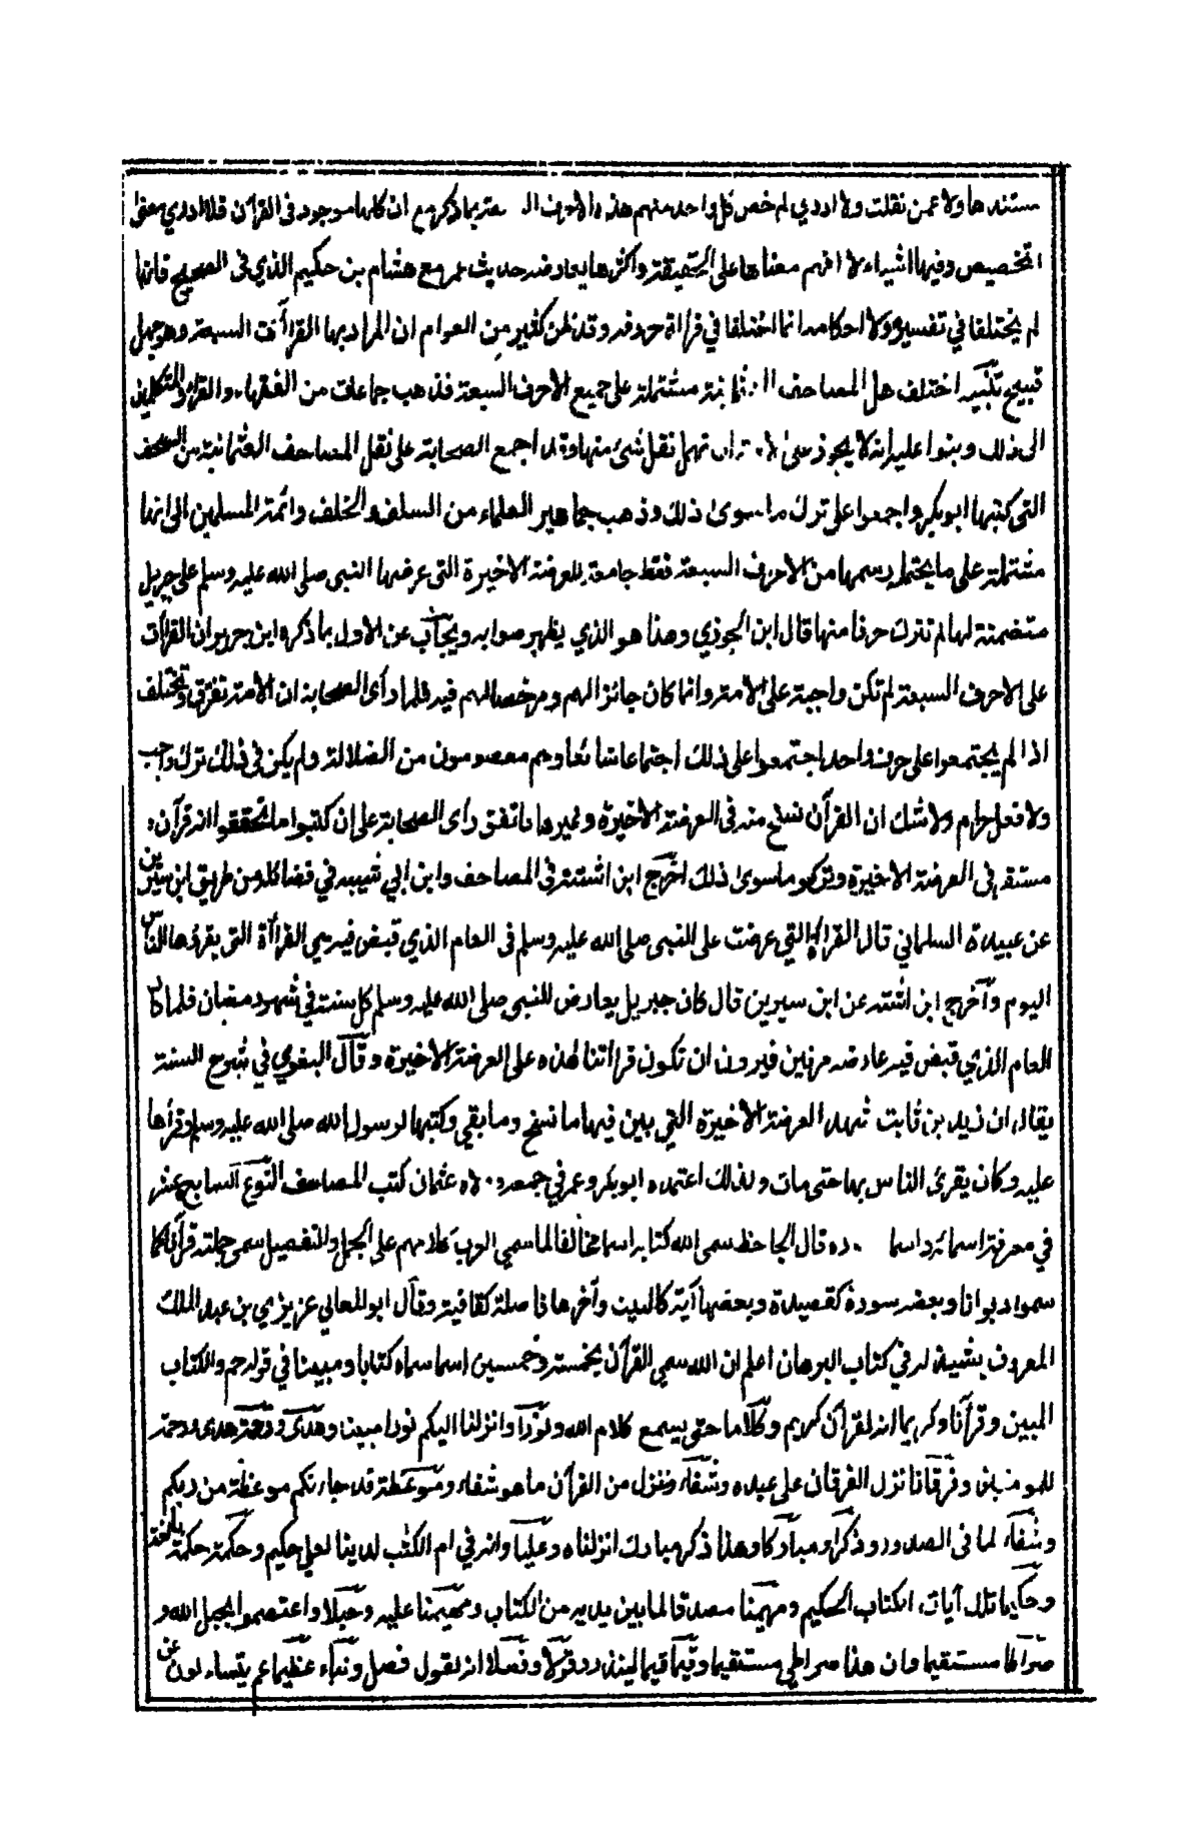 مستندها ولا عمن نقلت ولا ادري لم خص كل واحد منهم هذه الاحرف السبعة بما ذكر مع ان كلها موجود في القرآن فلا ادري معنى
التخصيص وفيها اشياء لا افهم معناها على الحقيقة واكثرها يعارضه حديث عمر مع هشام بن حكيم الذي في الصحيح فانهما
لم يختلفا في تفسيره ولا احكامه انما اختلفا في قراءة حروفه وقد ظن كثير من العوام ان المراد بها القراآت السبعة وهو جهل
قبيح تنبيه اختلف هل المصاحف العثمانية مشتملة على جميع الاحرف السبعة فذهب جماعات من الفقهاء والقراء والمتكلمين
الى ذلك وبنوا عليه انه لا يجوز على الامة ان تهمل نقل شئ منها وقد اجمع الصحابة على نقل المصاحف العثمانية من الصحف
التي كتبها ابو بكر واجمعوا على ترك ما سوى ذلك وذهب جماهير العلماء من السلف والخلف وائمة المسلمين الى انها
مشتملة على ما يحتمله رسمها من الاحرف السبعة فقط جامعة للعرضة الاخيرة التي عرضها النبي صلى الله عليه وسلم على جبريل
متضمنة لها لم تترك حرفا منها قال ابن الجوزي وهذا هو الذي يظهر صوابه ويجاب عن الاول بما ذكره ابن جرير ان القراءت
على الاحرف السبعة لم تكن واجبة على الامة وانما كان جائز الهم ومرخصا لهم فيه فلما رأى الصحابة ان الامة تفترق وتختلف
اذا لم يجتمعوا على حرف واحد اجتمعوا على ذلك اجتماعا شائعا وهم معصومون من الضلالة ولم يكن في ذلك ترك واجب
ولا فعل حرام ولا شك ان القرآن نسخ منه في العرضة الاخيرة وغير فاتفق رأى الصحابة على ان كتبوا ما تحققوا انه قرآن
مستقر في العرضة الاخيرة وتركوا ما سوى ذلك اخرج ابن اشتة في المصاحف وابن ابي شيبه في فضائله من طريق ابن سيرين
عن عبيدة السلماني قال القراءة التي عرضت على النبي صلى الله عليه وسلم في العام الذي قبض فيه هي القراءة التي يقرؤها الناس
اليوم وآخرج ابن اشته عن ابن سيرين قال كان جبريل يعارض للنبي صلى الله عليه وسلم كل سنة في شهر رمضان فلما كان
العام الذي قبض فيه عارضه مرتين فيرون ان تكون قرائتنا هذه على العرضة الاخيرة وقال البغوي في شرح السنة
يقال ان زيد بن ثابت شهد العرضة الاخيرة التي بين فيها ما نسخ وما بقي وكتبها لرسول الله صلى الله عليه وسلم وقرأها
عليه وكان يقرئ الناس بها حتى مات ولذلك اعتمده ابو بكر وعمر في جمعه وولاه عثمان كتب المصاحف النوع السابع عشر
في معرفة اسمائه واسما ره قال الجاحظ سمى الله كتابه اسما مخالفا لما سمى العرب كلامهم على الجمل والتفصيل سمى جملته قرآنا كما
سموا ديوانا وبعضه سورة كقصيدة وبعضها آية كالبيت وآخرها فاصلة كقافية وقال ابو المعالي عزيزي بن عبد الملك
المعروف بشيذلة في كتاب البرهان اعلم ان الله سمى القرآن بخمسة وخمسين اسما سماه كتابا ومبينا في قوله حم والكتاب
المبين وقرآنا وكريما انه لقرآن كريم وكلاما حتى يسمع كلام الله ونورا وانزلنا اليكم نورا مبينا وهدى ورحمة هدى ورحمة
للمومنين وفرقانا نزل الفرقان على عبده وشفاء وننزل من القرآن ما هو شفاء وموعظة قد جاءتكم موعظة من ربكم
وشفاء لما في الصدور وذكرا ومباركا وهذا ذكر مبارك انزلناه وعليا وانه في ام الكتب لدينا لعلي حكيم وحكمة حكمة بالغة
وحكيما تلك آيات الكتاب الحكيم ومهيمنا مصدقا لما بين يديه من الكتاب ومهيمنا عليه وحبلا واعتصموا بحبل الله و
صراطا مستقيما وان هذا صراطي مستقيما وقيما قيما لينذر وقولا وفصلا انه لقول فصل ونباء عظيما عم يتساءلون عن